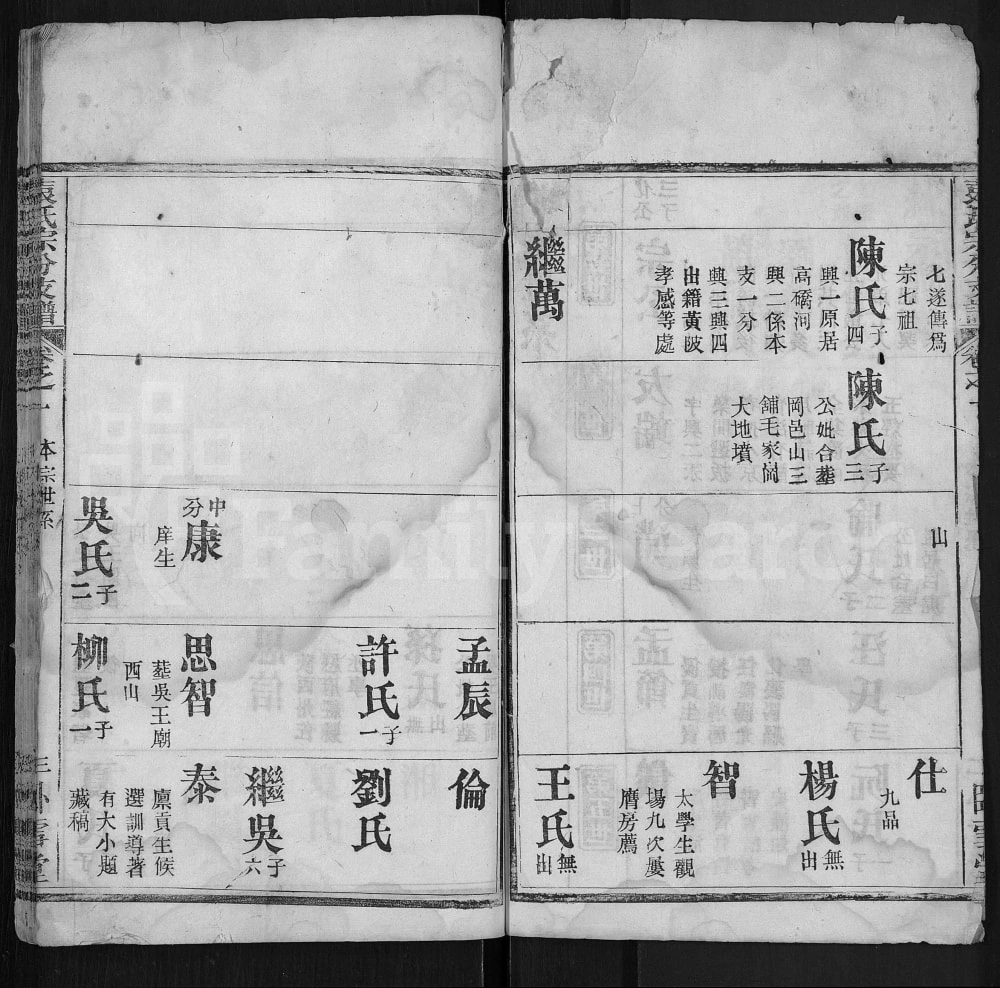 七遂傳爲
宗七祖
陳氏
子四
興一原居
高磱河
興二係本
支一分
興三興四
出籍黃陂
孝感等處
繼萬
陳氏
子三
公妣合塟
岡邑山三
舖毛家
大地墳
山
仕
九品
楊氏
無出
智
太學生觀
場九次屢
膺房薦
王氏
無出
袁氏宗分支譜
卷之一
本宗世系
中分
康
庠生
吳氏
子二
孟辰
許氏
子一
思智
塟吳王廟
西山
柳氏
子一
倫
劉氏
繼吳
子六
泰
廪貢生候
選訓導著
有大小題
藏稿
FamilySearch